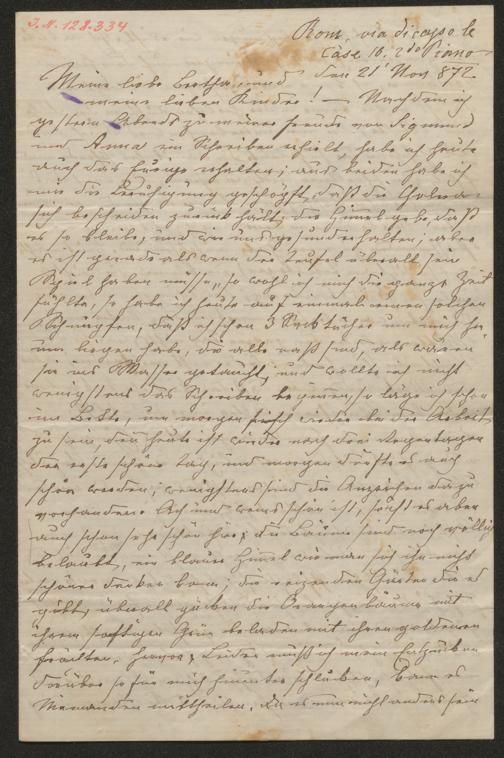 J. N. 128.334
Rom, via di capo le
Case 16. 2do Piano
den 21t Nov 872.
Meine liebe Bertha, und
meine lieben Kinder! — Nachdem ich
gestern Abends zu meiner Freude von Sigmund
und Anna ein Schreiben erhielt, habe ich heute
auch das Eurige erhalten; aus beiden habe ich
mir die Beruhigung geschöpft, daß die Cholera
sich bescheiden zurück hält; der Himmel gebe, daß
es so bleibe, und wir uns gesund erhalten, aber
es ist gerade als wenn der Teufel überall sein
Spiel haben müsse, so wohl ich mich die ganze Zeit
fühlte, so habe ich heute auf einmal einen solchen
Schnupfen, daß ich schon 3 Sacktücher um mich he-
rum liegen habe, die alle naß sind, als wären
sie ins Wasser getaucht, und wollte ich nicht
wenigstens das Schreiben beginnen, so läge ich schon
im Bette, um morgen frisch wieder bei der Arbeit
zu sein, den heute ist wieder nach drei Regentagen
der erste schöne Tag, und morgen dürfte es auch
schön werden; wenigstens sind die Anzeichen dazu
vorhanden. Ach und wenns schön ist, ists aber
auch schon sehr schön hier; die Bäume sind noch völlig
belaubt, ein blauer Himmel wie man sich ihn nicht
schöner denken kann; die reizenden Gärten die es
gibt, überall gucken die Orangenbäume mit
ihrem saftigen Grün beladen mit ihren goldenen
Früchten hervor; Leider muß ich mein Entzücken
darüber so für mich hinunter schlucken, kann es
Niemanden mittheilen, da es nun nicht anders sein